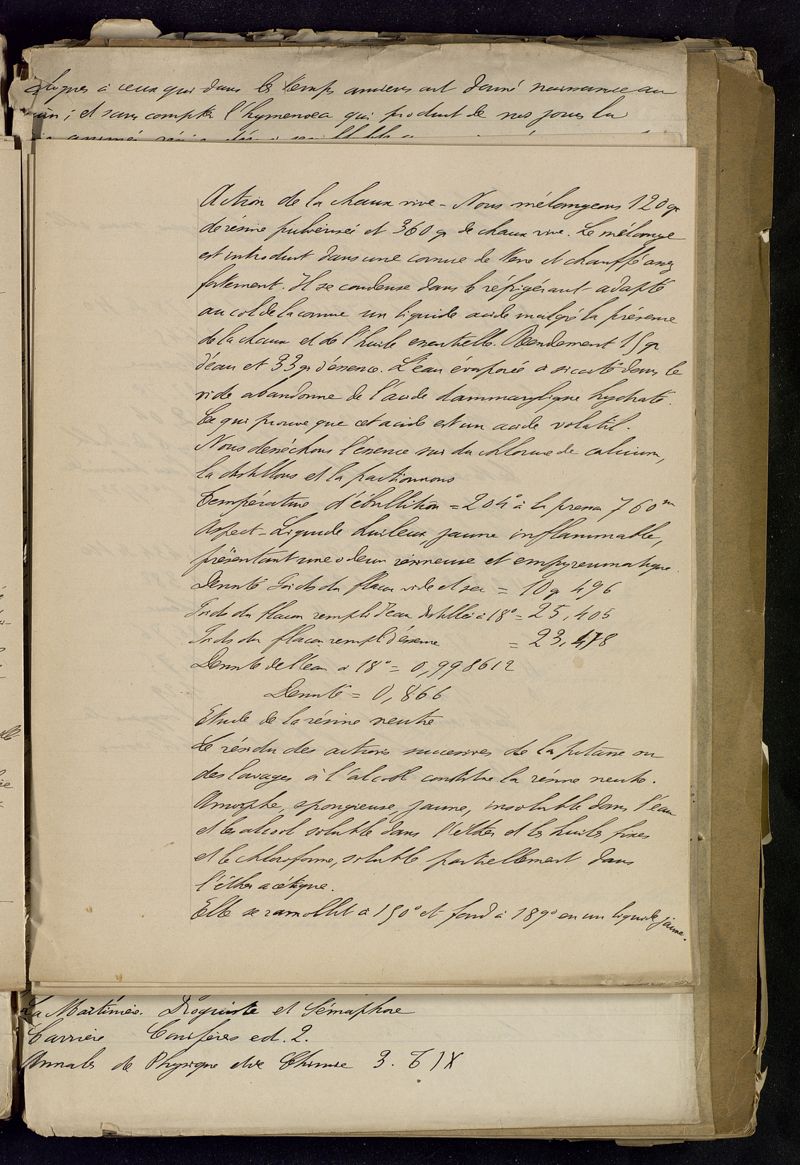 à ceux qui dans les temps anciens ont donné naissance au
; et sans compter l'hymenoea qui produit de nos jours la
Action de la chaux vive - Nous mélangeons 120 gr
de résine pulvérisée et 360 gr de chaux vive. Le mélange
est introduit dans une cornue de verre et chauffé assez
fortement. Il se condense dans le réfrigérant adapté
au col de la cornue un liquide acide malgré la présence
de la chaux et de l'huile essentielle. Rendement 15 gr
d'eau et 33 gr d'essence. L'eau évaporée a siccité dans le
vide abandonne de l'acide dammarylique hydraté.
Ce qui prouve que cet acide est un acide volatil.
Nous desséchons l'essence sur du chlorure de calcium,
la distillons et la fractionnons
Température d'ébullition = 204° à la press 760 m
Aspect - Liquide huileux, jaune inflammable,
présentant une odeur résineuse et empyreumatique.
Densité Poids du flacon vide et sec = 10 g 496
Poids du flacon rempli d'eau distillée à 18° = 25,405
Poids du flacon rempli d'essence = 23,478
Densité de l'eau à 18° = 0,998612
Densité = 0,866
Etude de la résine neutre
Le résidu des actions successives de la potasse ou
des lavages à l'alcool constitue la résine neutre.
Amorphe, spongieuse, jaune, insoluble dans l'eau
et les alcool soluble dans l'éther et les huiles fixes
et le chloroforme, soluble partiellement dans
l'éther acétique.
Elle se ramollit à 150° et fond à 189° en un liquide jaune.
La Martinière. Droguiste et Sémaphore
Carrière Conifères ed. 2.
Annales de Physique et de Chimie 3. T IX